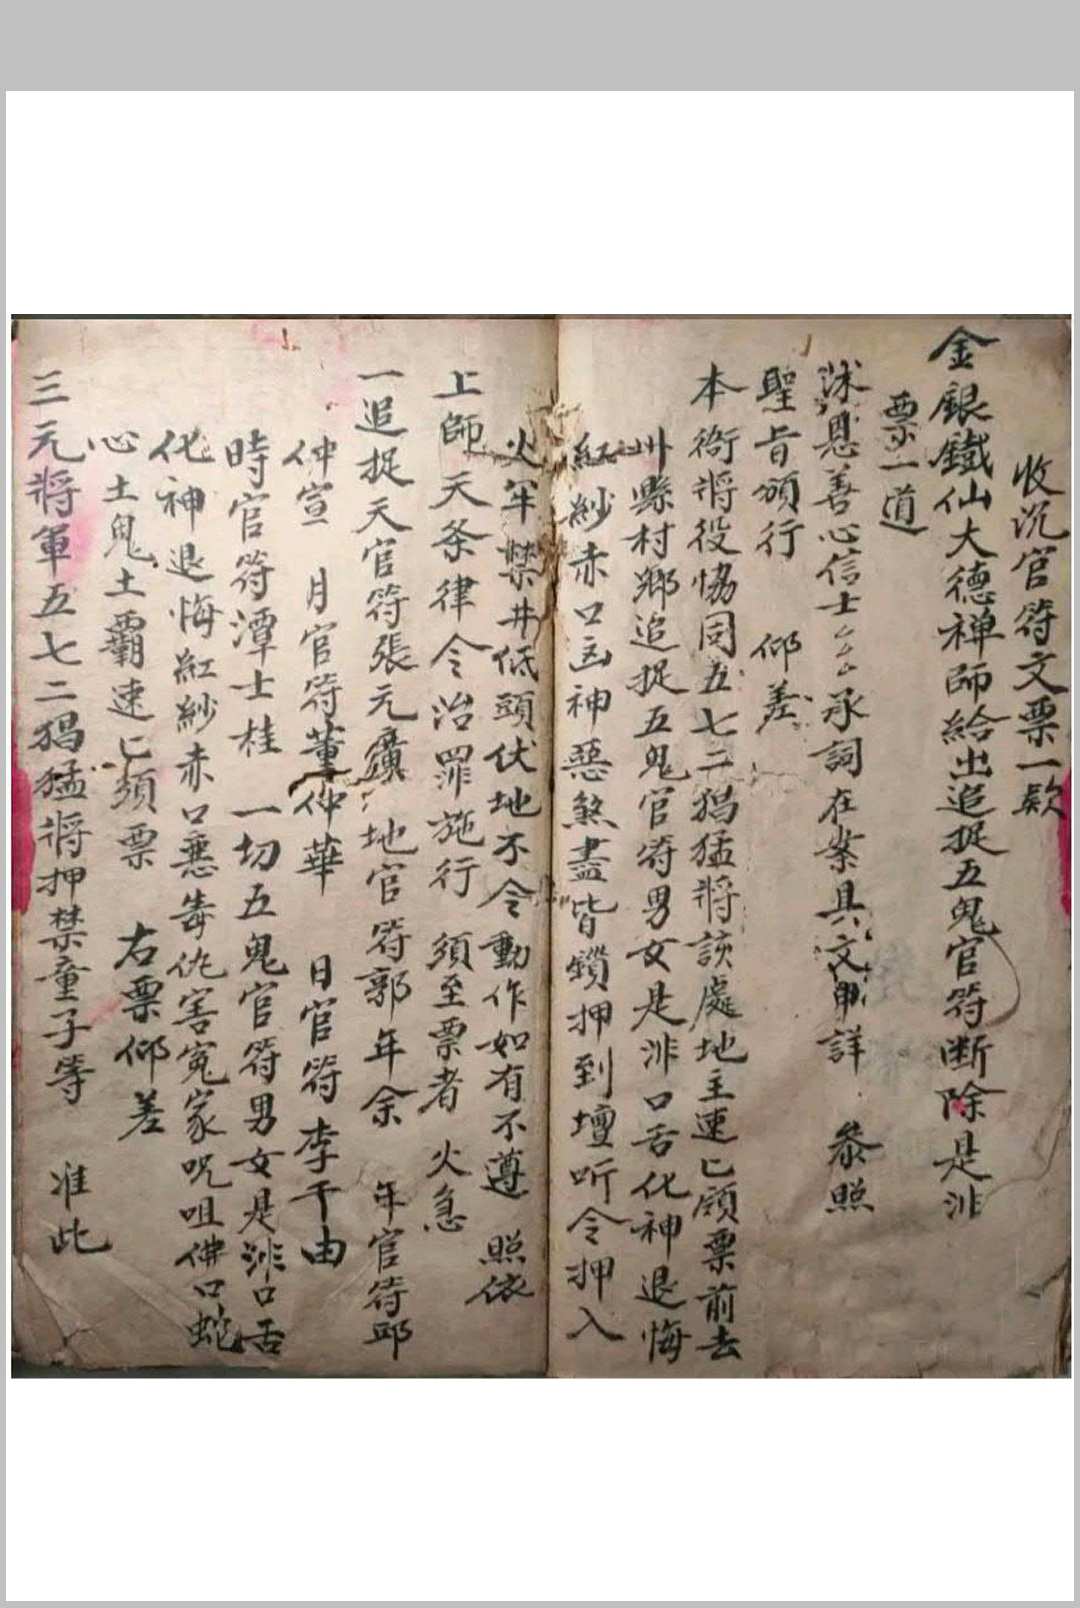 收沉官符文票一款
金銀鐵仙大德禅師給出追捉五鬼官符断除是非
票一道
沐恩善心信士 承詞在案具文申詳 恭照
聖旨頒行 仰差
本衙將役協同五七二猖猛將該處地主速亡領票前去
卅縣村鄉追捉五鬼官符男女是非口舌化神退悔
紅紗赤口凶神惡煞盡皆鎖押到壇听令押入
火牢禁井低頭伏地不令動作如有不遵 照依
上師天条律令治罪施行 須至票者 火急
一追捉天官符張元廣 地官符郭年余 年官符邱
仲宣 月官符董仲華 日官符李千由
時官符潭士桂 一切五鬼官符男女是非口舌
化神退悔紅紗赤口惡毒仇害冤家咒咀佛口蛇
心土鬼土霸速亡須票 右票仰差
三元將軍五七二猖猛將押禁童子等 准此